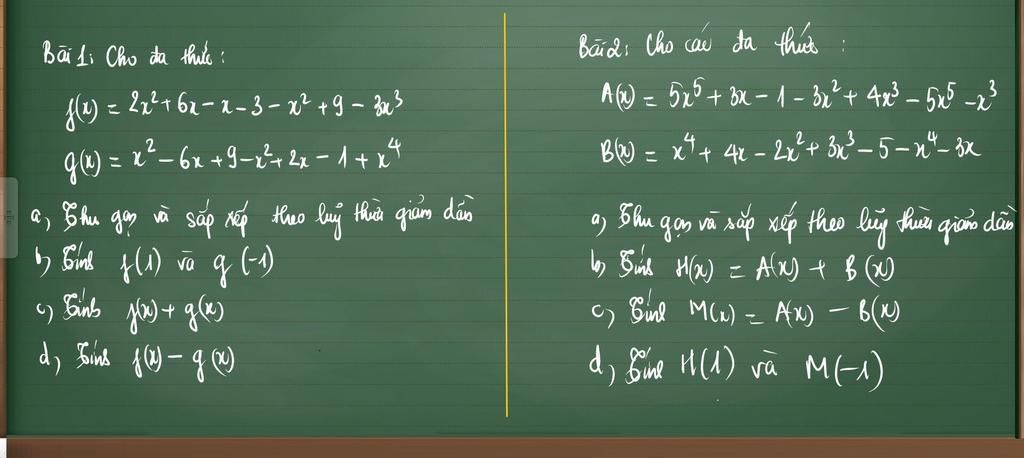 Bài 1: Cho đa thức:
f(x) = 2x² + 6x - x - 3 - x² + 9 - 3x³
g(x) = x² - 6x + 9 - x² + 2x - 1 + x⁴
a, Thu gọn và sắp xếp theo luỹ thừa giảm dần
b, Tính f(1) và g(-1)
c, Tính f(x) + g(x)
d, Tính f(x) - g(x)
Bài 2: Cho các đa thức:
A(x) = 5x⁵ + 3x - 1 - 3x² + 4x³ - 5x⁵ - x³
B(x) = x⁴ + 4x - 2x² + 3x³ - 5 - x⁴ - 3x
a, Thu gọn và sắp xếp theo luỹ thừa giảm dần
b, Tính H(x) = A(x) + B(x)
c, Tính M(x) = A(x) - B(x)
d, Tính H(1) và M(-1)